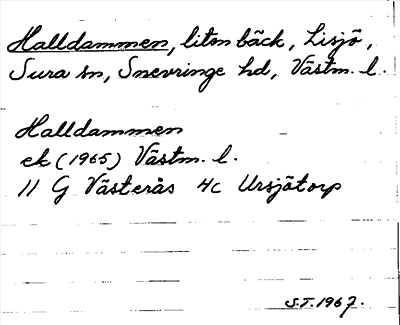 Halldammen, liten bäck, Lisjö,
Sura sn, Snevringe hd, Västm. l.
Halldammen
ek (1965) Västm. l.
11 G Västerås 4c Ursjötorp
S.T. 1967.